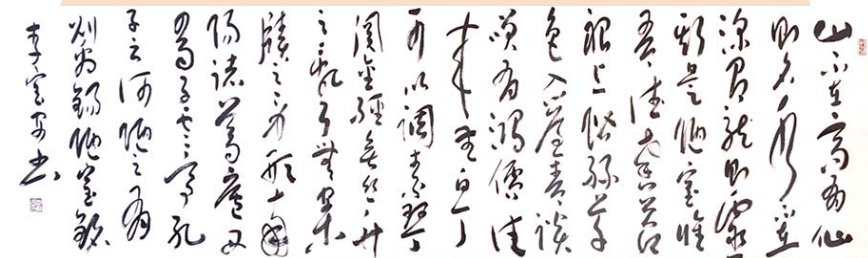 山不在高有仙
則名水不在
深有龍則靈
斯是陋室惟
吾德馨苔痕
上階綠草
色入簾青談
笑有鴻儒往
來無白丁
可以調素琴
閱金經無絲竹
之亂耳無案
牘之勞形南
陽諸葛廬西
蜀子雲亭孔
子云何陋之有
劉禹錫陋室銘
李 书